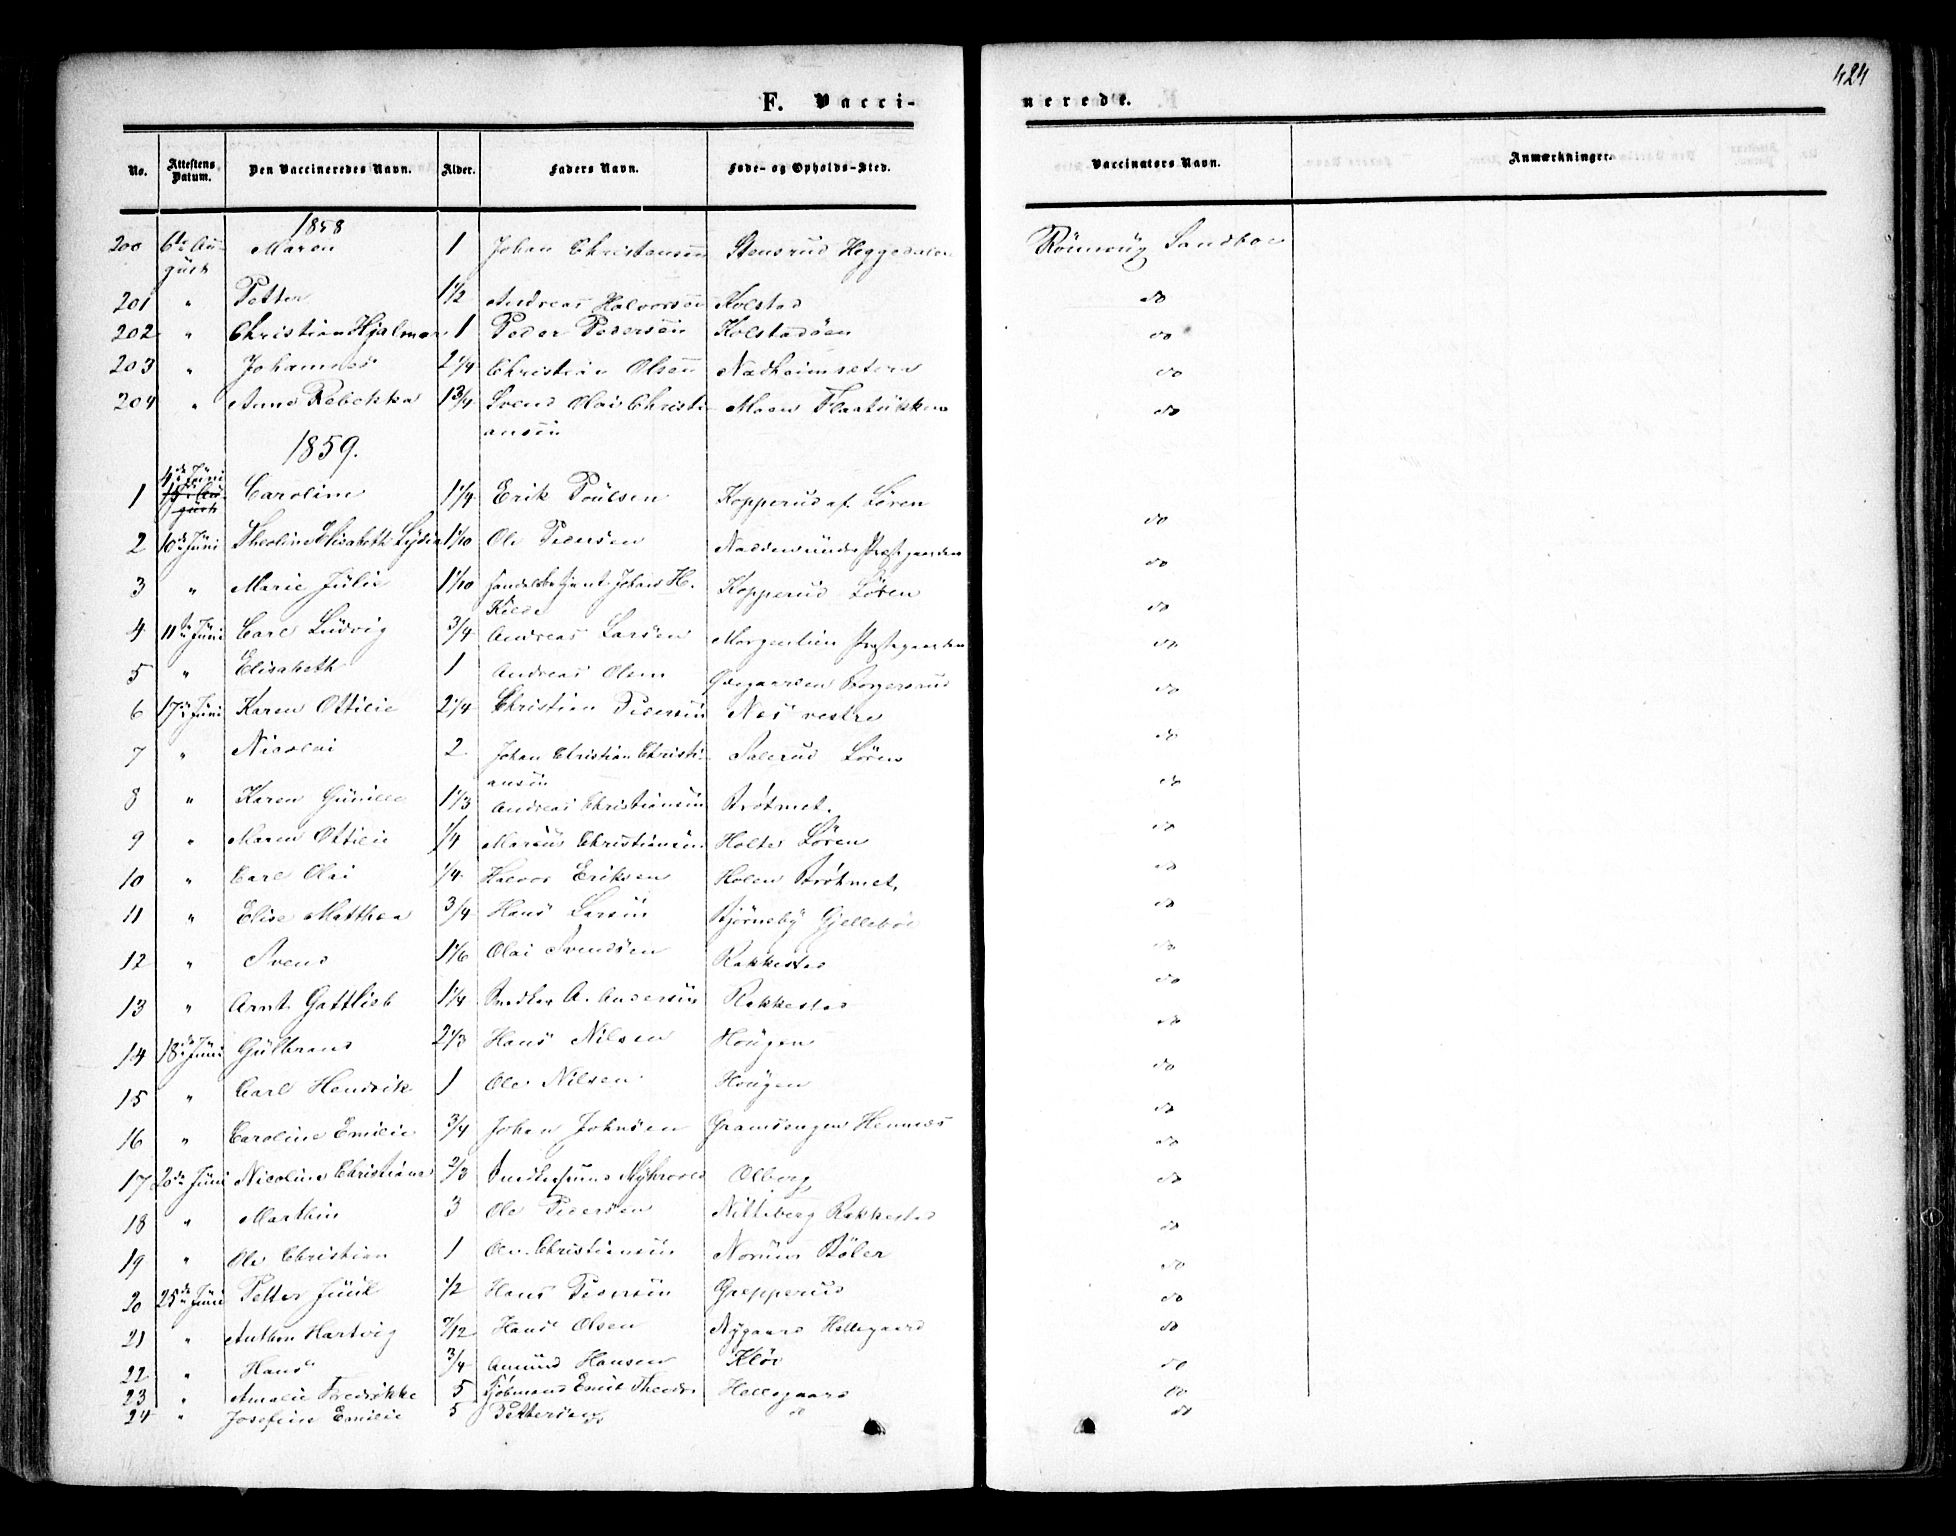 424
F. Vacci-
nerede.
No. Attestens Datum. Den Vaccineredes Navn. Alder. Faders Navn. Føde- og Opholds-Sted. Vaccinators Navn. Anmærkninger.
1858
200 6te Au- Maren 1 Johan Christensen Stensrud Heggedalen Rönnoug Sandboe
gust
201 " Petter 1 1/2 Andreas Halvorsen Kolstad do
202 " Christian Hjalmar 1 Peder Pedersen Kolstadöen do
203 " Johannes 2 1/4 Christian Olsen do
204 " Anne Rebekka 1 3/4 Svend Olai Christi- Moen do
ansen
1859.
4de Juni
1 15 Au- Caroline 1 1/4 Erik Poulsen Kopperud af Løren do
gust
2 10de Juni Theoline Elisabeth Lydia 1 1/10 Ole Pedersen Præstegaarden do
3 " Marie Julie 1 1/10 Johan H. Kopperud Løren do
Kilde
4 11te Juni Carl Ludvig 3/4 Andreas Larsen Præstegaarden do
5 " Elisabeth 1 Andreas Olsen Ødegaarden Borgersrud do
6 17de Juni Karen Ottilie 2 1/4 Christian Pedersen Næs vestre do
7 " Nicolai 2 Johan Christian Christi- Løren do
ansen
8 " Karen Gunille 1 1/3 Andreas Christiansen Brøtmet. do
9 " Maren Ottilie 1/4 Marius Christiansen Holter Løren do
10 " Carl Olai 1/4 Halvor Eriksen Holen Brøtmet. do
11 " Elise Matthea 3/4 Hans Larsen Bjørneby Gjellebøe do
12 " Svend 1 1/6 Olai Svendsen Rakkestad do
13 " Arnt Gottlieb 1 1/4 Snedker A. Andersen Rakkestad do
14 18de Juni Gulbrand 2 1/3 Hans Nilsen Hougen do
15 " Carl Hendrik 1 Ole Nilsen Hougen do
16 " Caroline Emilie 3/4 Johan Johnsen Gramsengen Hennæs do
17 20de Juni Nicoline Christiane 2/3 Olberg do
18 " Marthin 3 Ole Pedersen Nittiberg Rakkestad do
19 " Ole Christian 1 Ole Christiansen Norum Bøler do
20 25de Juni Petter Juul 1/2 Hans Pedersen Grepperud do
21 " Anthon Hartvig 7/12 Hans Olsen Nygaard Hellegaard do
22 " Hans 3/4 Amund Hansen Kløv do
23 " Amalie Fredrikke 5 Kjøbmand Emil Theodor Hellegaard do
24 " Josefine Emilie 5 Pettersen do do